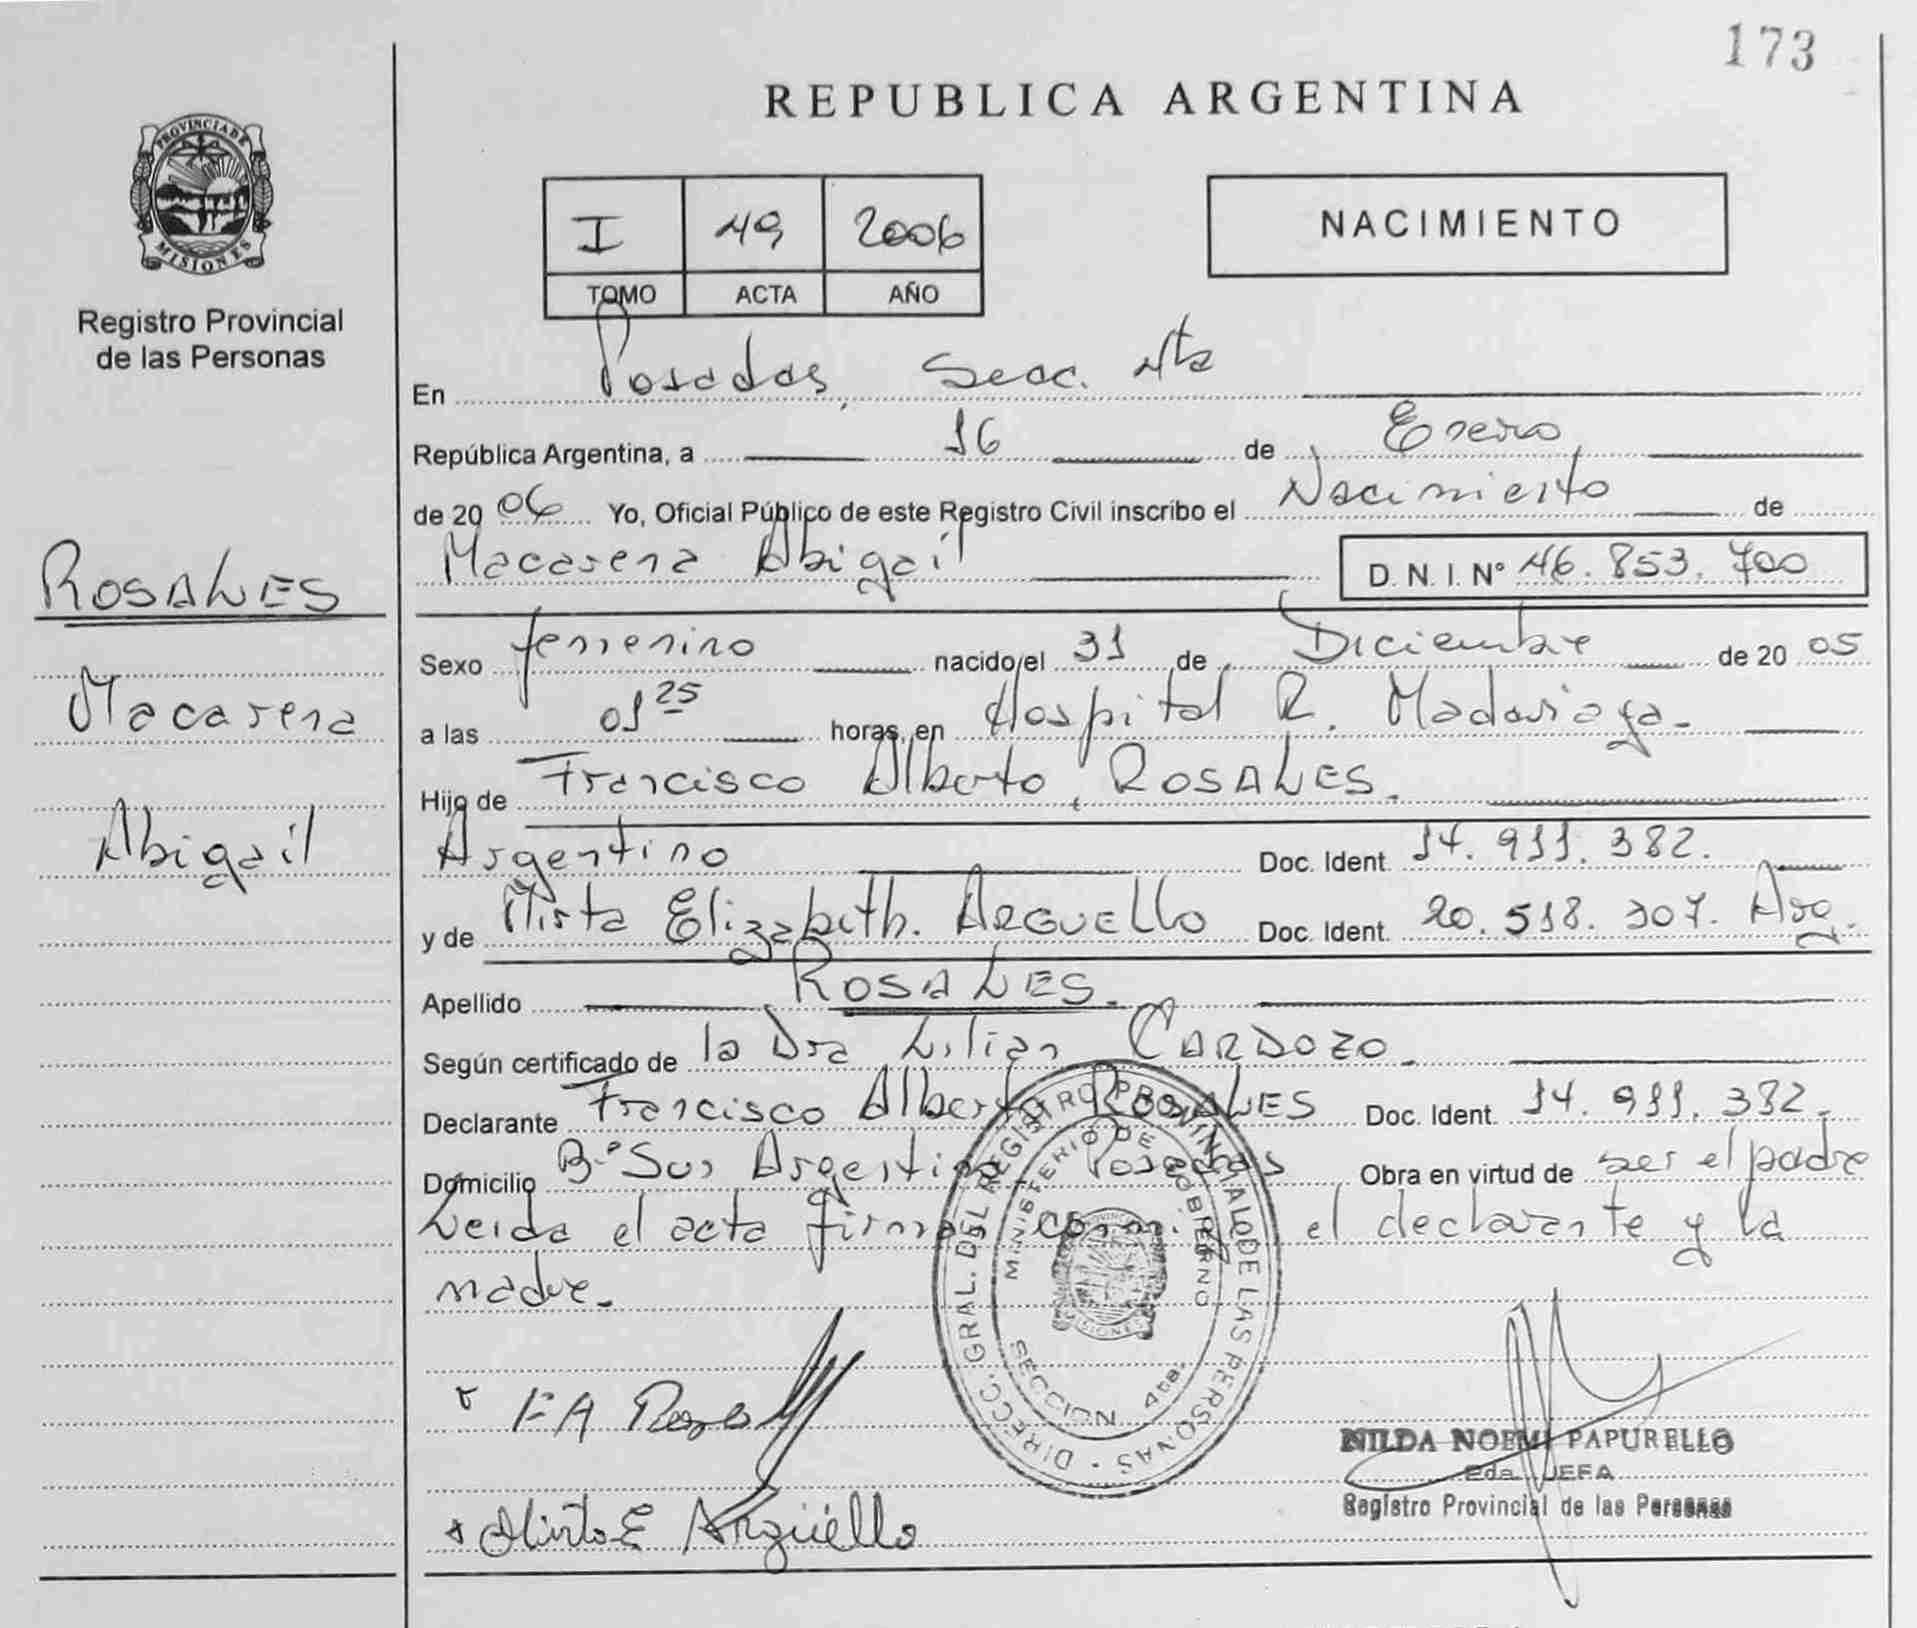 173
REPUBLICA ARGENTINA
PROVINCIA DE
MISIONES
Registro Provincial
de las Personas
I 49 2006
TOMO ACTA AÑO
NACIMIENTO
En Posadas, Secc. 4ta
República Argentina, a 16 de Enero
de 2006 Yo, Oficial Público de este Registro Civil inscribo el Nacimiento de
Macarena Abigail D. N. I. N° 46.853.700
ROSALES
Macarena
Abigail
Sexo femenino nacido el 31 de Diciembre de 2005
a las 01 25 horas, en Hospital R. Madariaga.
Hijo de Francisco Alberto ROSALES.
Argentino Doc. Ident. 14.911.382.
y de Mirta Elizabeth. ARGUELLO Doc. Ident. 20.518.307. Arg.
Apellido ROSALES.
Según certificado de la Dra Lilian CARDOZO.
Declarante Francisco Alberto ROSALES Doc. Ident. 14.911.382.
Domicilio B° Sur Argentino Posadas Obra en virtud de ser el padre
Leida el acta firman conmigo el declarante y la
madre.
DIRECC. GRAL. DEL REGISTRO PROVINCIAL DE LAS PERSONAS
MINISTERIO DE GOBIERNO
SECCION 4ta.
MISIONES
NILDA NOEMI PAPURELLO
2da. JEFA
Registro Provincial de las Personas
Mirta E Argüello